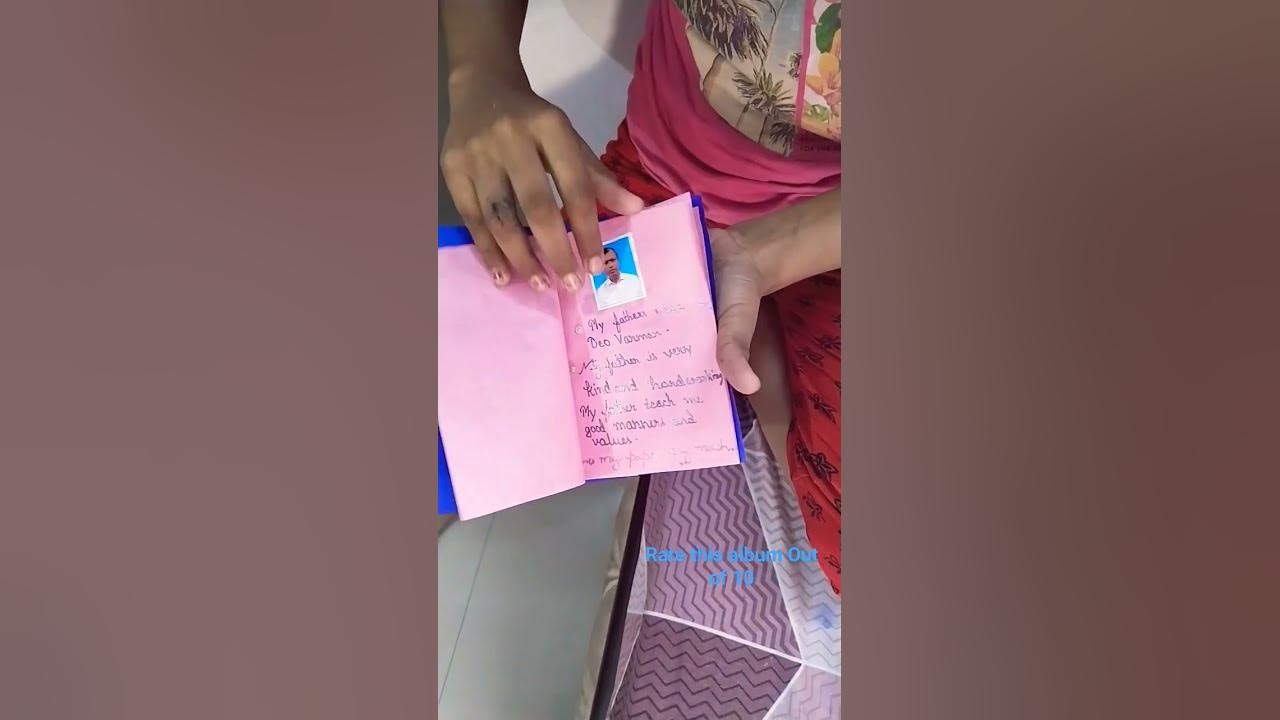 My father
Deo Varman.
My father is very
kind and hardworking
My father teach me
good manners and
values.
my papa
Rate this album Out
of 10